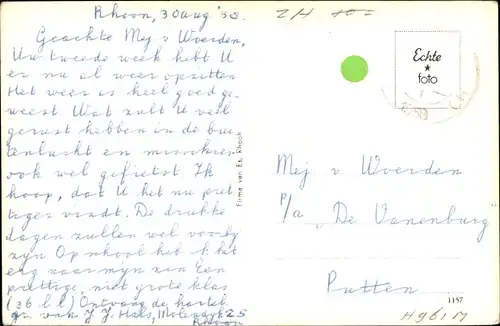 Rhoon, 30 aug '50.
Geachte Mej v Woerden,
Uw tweede week hebt U
er nu al weer opzitten
Het weer is heel goed ge-
weest. Wat zult U veel
gerust hebben in de bui-
tenlucht en misschien
ook wel gefietst. Ik
hoop, dat U het nu pret
tiger vindt. De drukke
dagen zullen wel voorby
zyn Op school heb k het
erg naar myn zin Een
prettige, niet grote klas
(36 ll) Ontvang de hartel.
gr. van J. J. Hals, Molendyk 25
Rhoon
Firma van Es, Rhoon
ZH
Echte
foto
Mej v Woerden
p/a "De Vanenburg"
Putten
1157
H961M